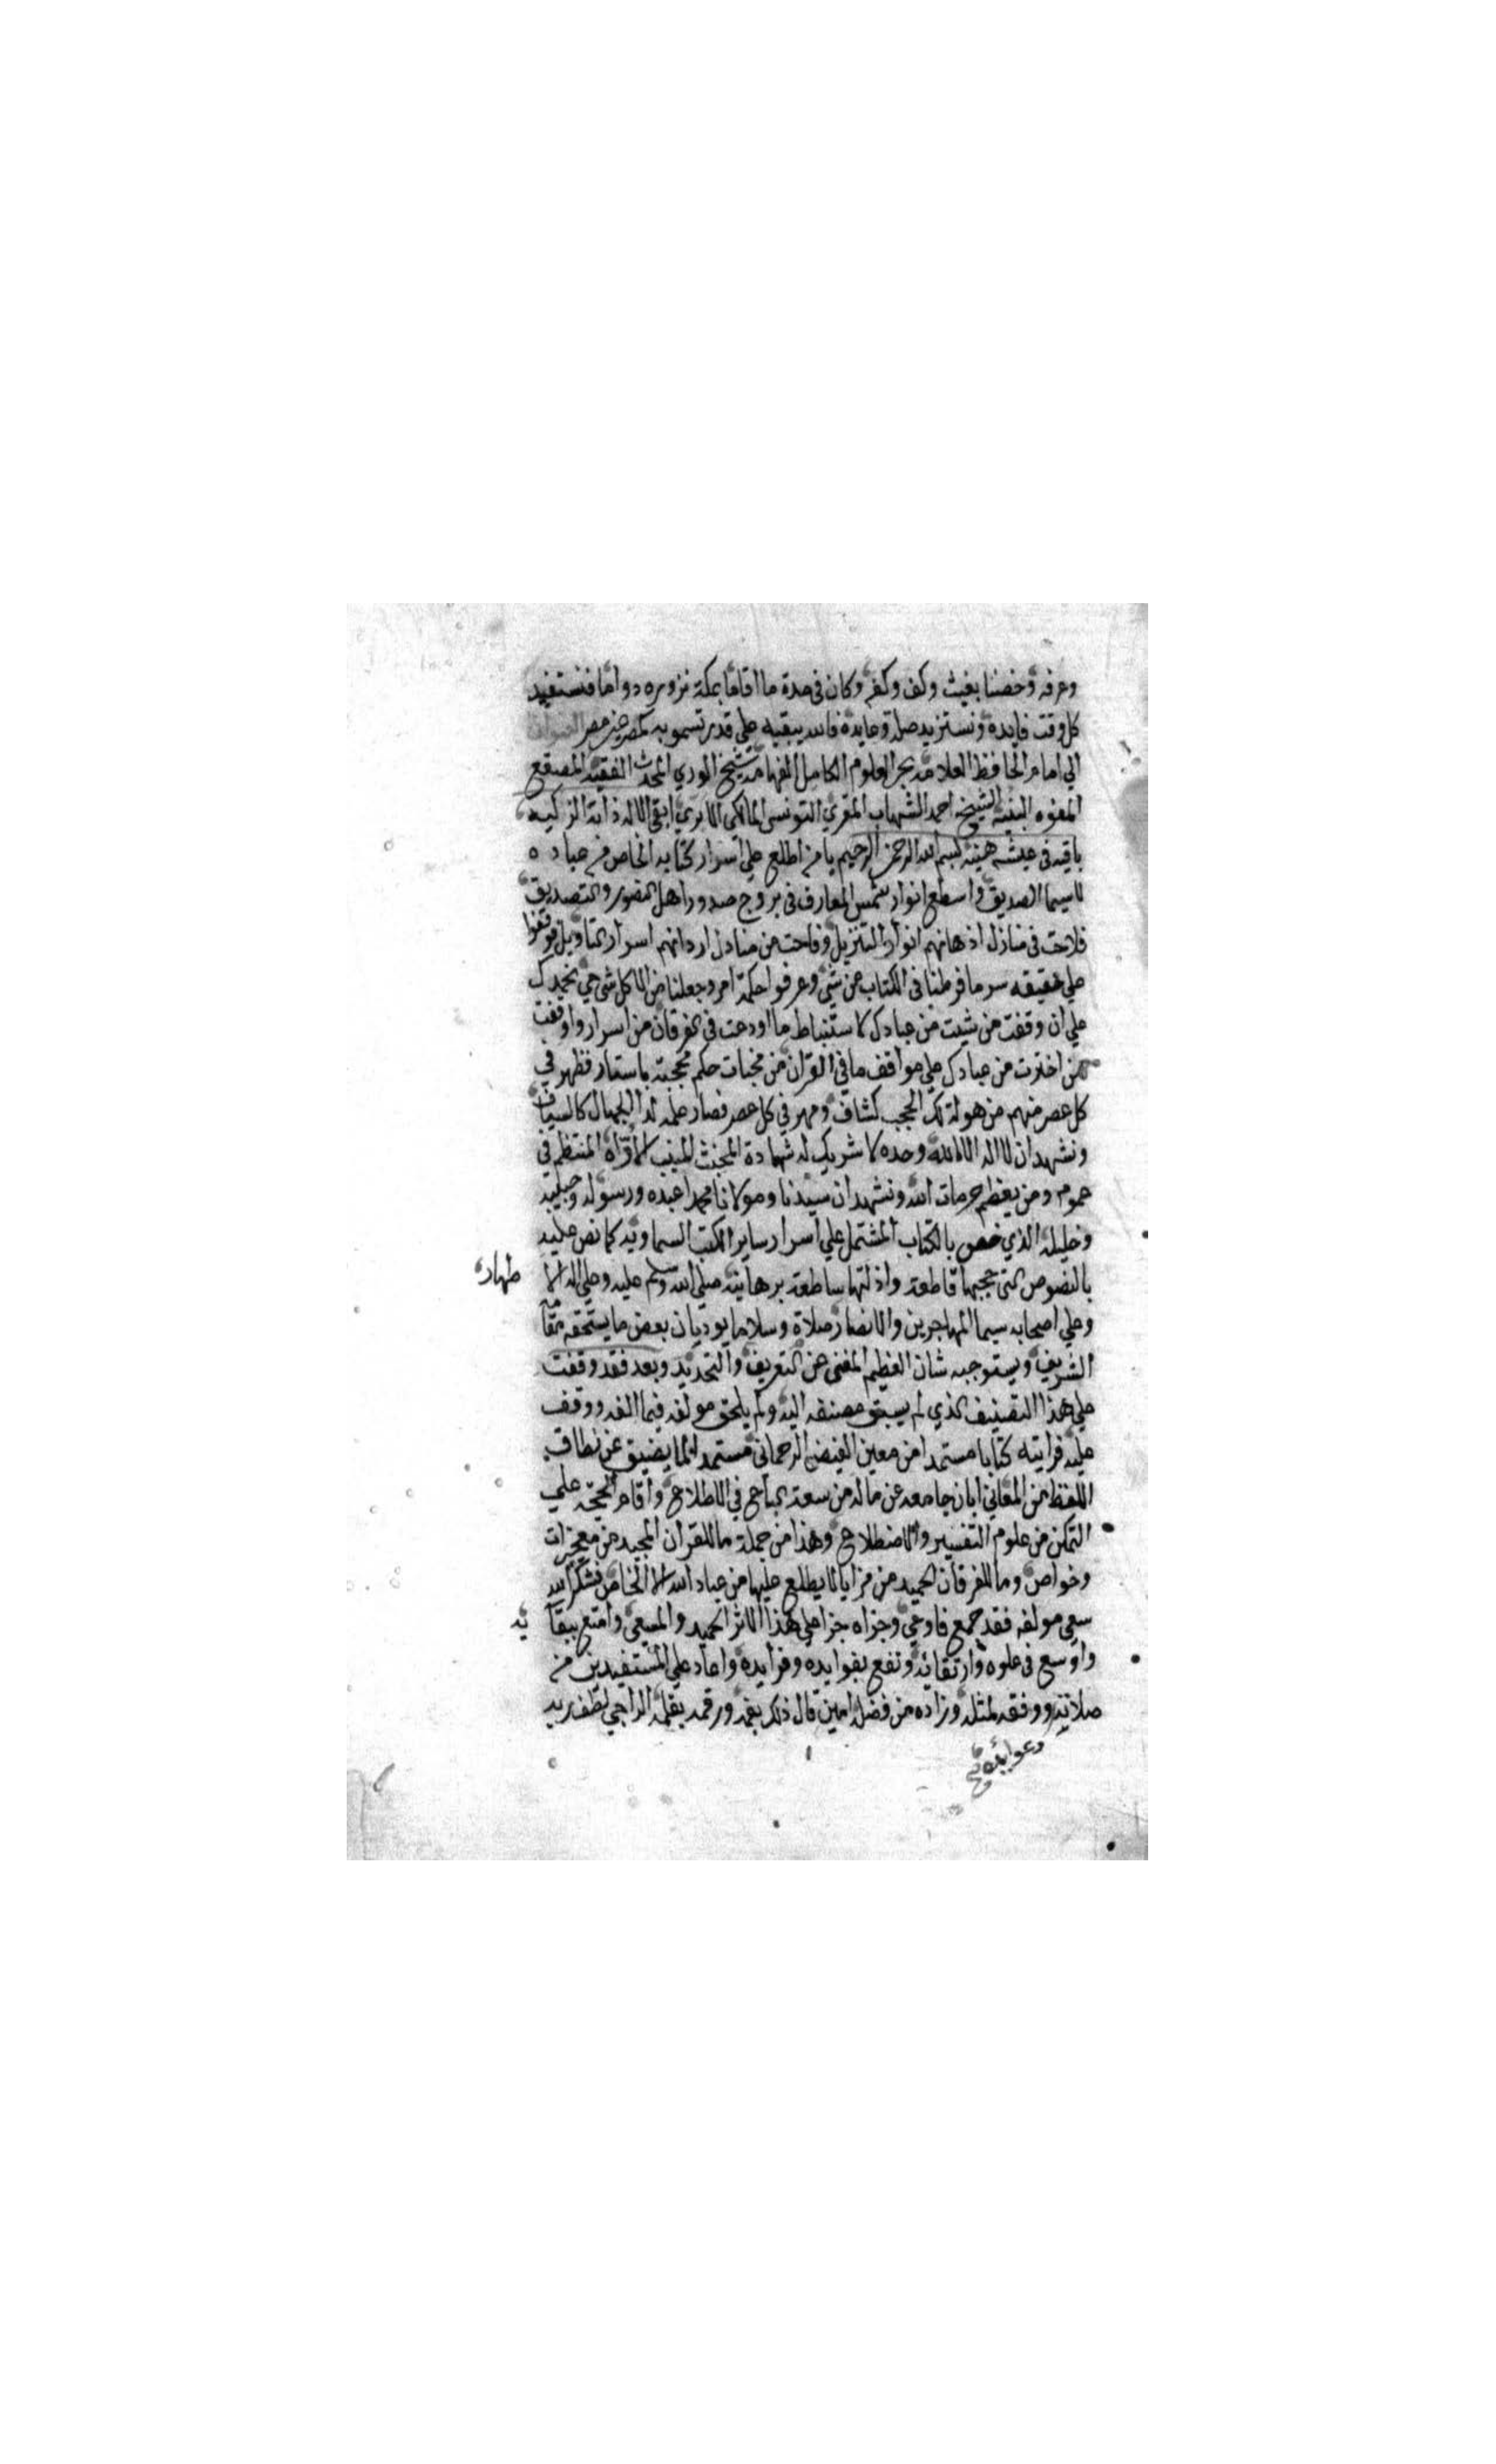 وعرفه وخصنا بغيث وكف وكفه وكان فى مدة ما اقاما بمكة نزوره دواما فنستفيد
كل وقت فايدة ونستزيد صلة وعايدة فالله يبقيه على قدر تسموبه مصر
الي امام الحافظ العلامة بحر العلوم الكامل الفهامة شيخ الوري المحدث الفقيه المصقع
المفوه النبيه الشيخ احمد الشهاب المقري التونسي المالكى ابقى الاله ذاته الزكيه
باقيه فى عيشه هنيه بسم الله الرحمن الرحيم يا من اطلع على اسرار كتابه الخاص من عباده
لاسيما الصديق واسطع انوار شمس المعارف فى بروج صدور اهل التصور والتصديق
فلاحت فى منازل اذهانهم انوار التنزيل وفاحت من منادل اردانهم اسرار التاويل فوقفوا
علي حقيقه سر ما فرطنا فى الكتاب من شي وعرفوا حكمة امر وجعلنا من الماء كل شي حي نحمدك
علي ان وقفت من شيت من عبادك لاستنباط ما اودعت فى الفرقان من اسرار واوقفت
من اخترت من عبادك علي مواقف ما في القران من مخبات حكم محجبة باستار فظهر في
كل عصر منهم من هو لتلك الحجب كشاف ومهر في كل عصر فصار علمه لداء الجهال كالسياف
ونشهد ان لا اله الا الله وحده لا شريك له شهادة المخبت المنيب الاواه المنتظم فى
عموم ومن يعظم حرمات الله ونشهد ان سيدنا ومولانا محمدا عبده ورسوله وحبيبه
وخليله الذي خص بالكتاب المشتمل علي اسرار ساير الكتب السماويه كما نص عليه
بالنصوص التى حججها قاطعة وادلتها ساطعة برهانية صلي الله وسلم عليه وعلي اله الاطهار
وعلي اصحابه سيما المهاجرين والانصار صلاة وسلاما يوديان بعض ما يستحقه مقامه
الشريف ويستوجبه شان العظيم المغنى عن التعريف والتحديد وبعد فقد وقفت
علي هذا التصنيف الذي لم يسبق مصنفه اليه ولم يلحق مولفه فيما الفه ووقف
عليه فرايته كتابا مستمدا من معين الفيض الرحمانى مستمد لما يضيق عن نطاق
اللفظ من المعاني ابان جامعه عن ماله من سعة الباع في الاطلاع واقام الحجة علي
التمكن من علوم التفسير والاضطلاع وهذا من جملة ما للقران المجيد من معجزات
وخواص وما للفرقان الحميد من مزايا لا يطلع عليها من عباد الله الا الخاص فشكر الله
سعي مولفه فقد جمع فاوعي وجزاه جزا علي هذا الاثر الحميد والمسعى وامتع ببقايه
واوسع فى علوه وارتقائه ونفع بفوايده وفرايده واعاد علي المستفيدين من
صلاته ووفقه لمثله وزاده من فضله امين قال ذلك بفمه ورقمه بقلمه الراجي لطف ربه
وعوايده